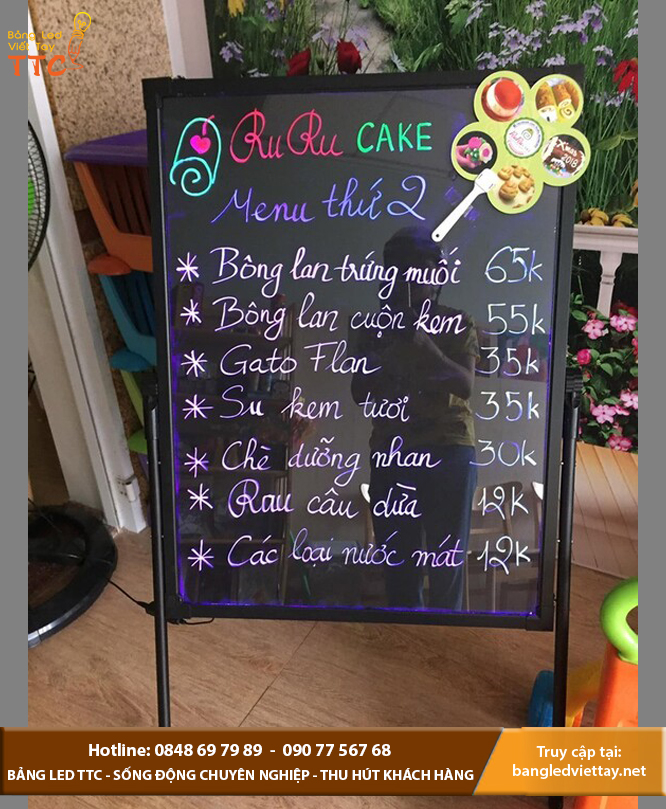 Bảng Led
Viết Tay
TTC
RuRu CAKE
Menu thứ 2
* Bông lan trứng muối 65k
* Bông lan cuộn kem 55k
* Gato Flan 35k
* Su kem tươi 35k
* Chè dưỡng nhan 30k
* Rau câu dừa 12k
* Các loại nước mát 12k
Xmas
2018
Hotline: 0848 69 79 89 - 090 77 567 68
BẢNG LED TTC - SỐNG ĐỘNG CHUYÊN NGHIỆP - THU HÚT KHÁCH HÀNG
Truy cập tại:
bangledviettay.net